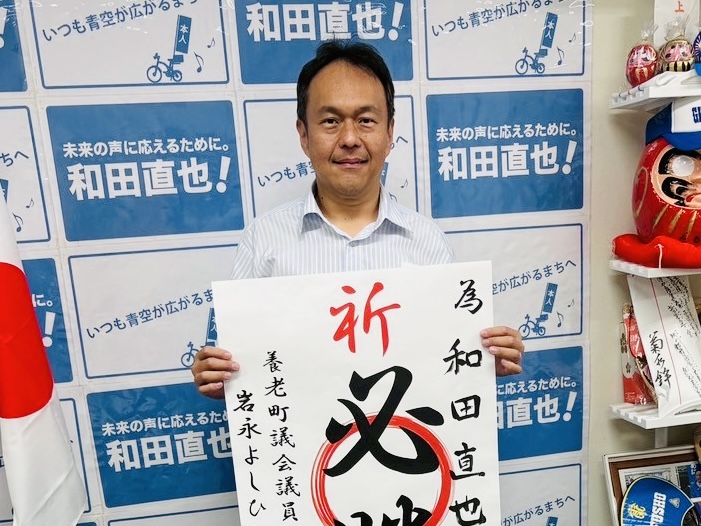 いつも青空が広がるまちへ
本人
和田直也!
いつも青空が広がるまちへ
本人
未来の声に応えるために。
和田直也!
いつも青空が広がるまちへ
未来の声に応えるために。
和田直也!
いつも青空が広がるまちへ
本人
未来の声に応えるために。
和田直也
為和田直也
祈
必
養老町議会議員
岩永よしひ
上
菊水鉾